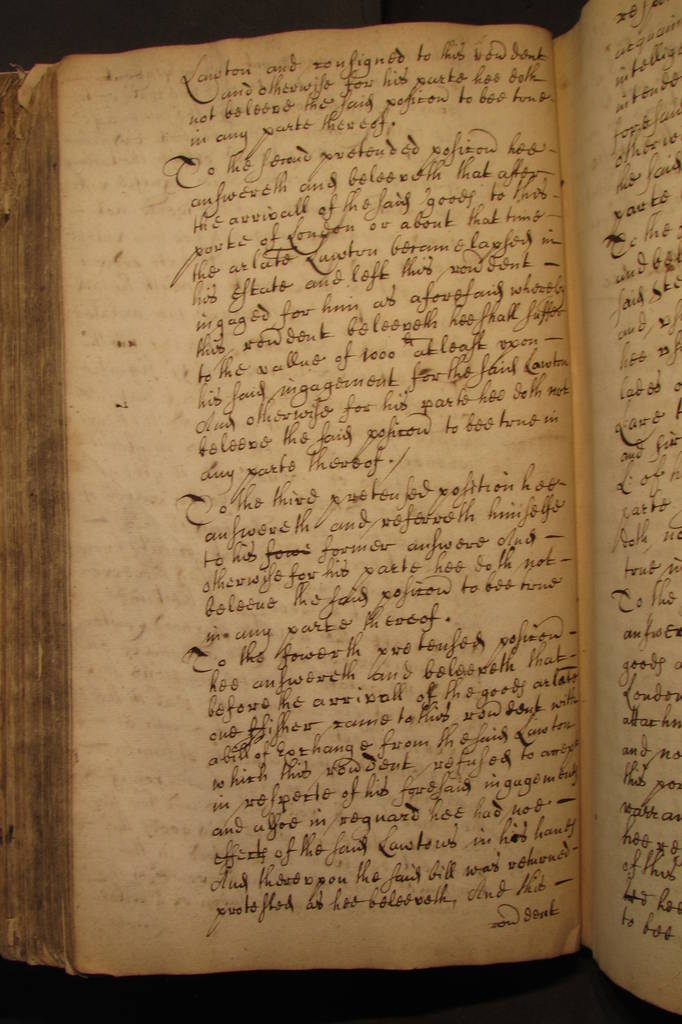 Lawton and consigned to this rendent
and otherwise for his parte hee doth
not beleeve the said positcon to bee true
in any parte thereof.
To the second pretended positcon hee
answereth and beleeveth that after
the arrivall of the said goods to this
porte of London or about that time
the arlate Lawton became lapsed in
his estate and left this rendent
ingaged for him as aforesaid whereby
this rendent beleeveth hee shall suffer
to the vallue of 1000 li at least upon
his said ingagement for the said Lawton
And otherwise for his parte hee doth not
beleeve the said positcon to bee true in
any parte thereof./
To the third pretensed position hee
answereth and referreth himselfe
to his fowe former answere And
otherwise for his parte hee doth not
beleeve the said positcon to bee true
in any parte thereof.
To the fowerth pretensed positcon
hee answereth and beleeveth that
before the arrivall of the goods arlate
one ffisher came to this rendent with
a bill of Exchange from the said Lawton
which this rendent refused to accept
in respecte of his foresaid ingagements
and allsoe in reguard hee had noe
effects of the said Lawtons in his hands
And thereupon the said bill was returned
protested as hee beleeveth, And this
rendent